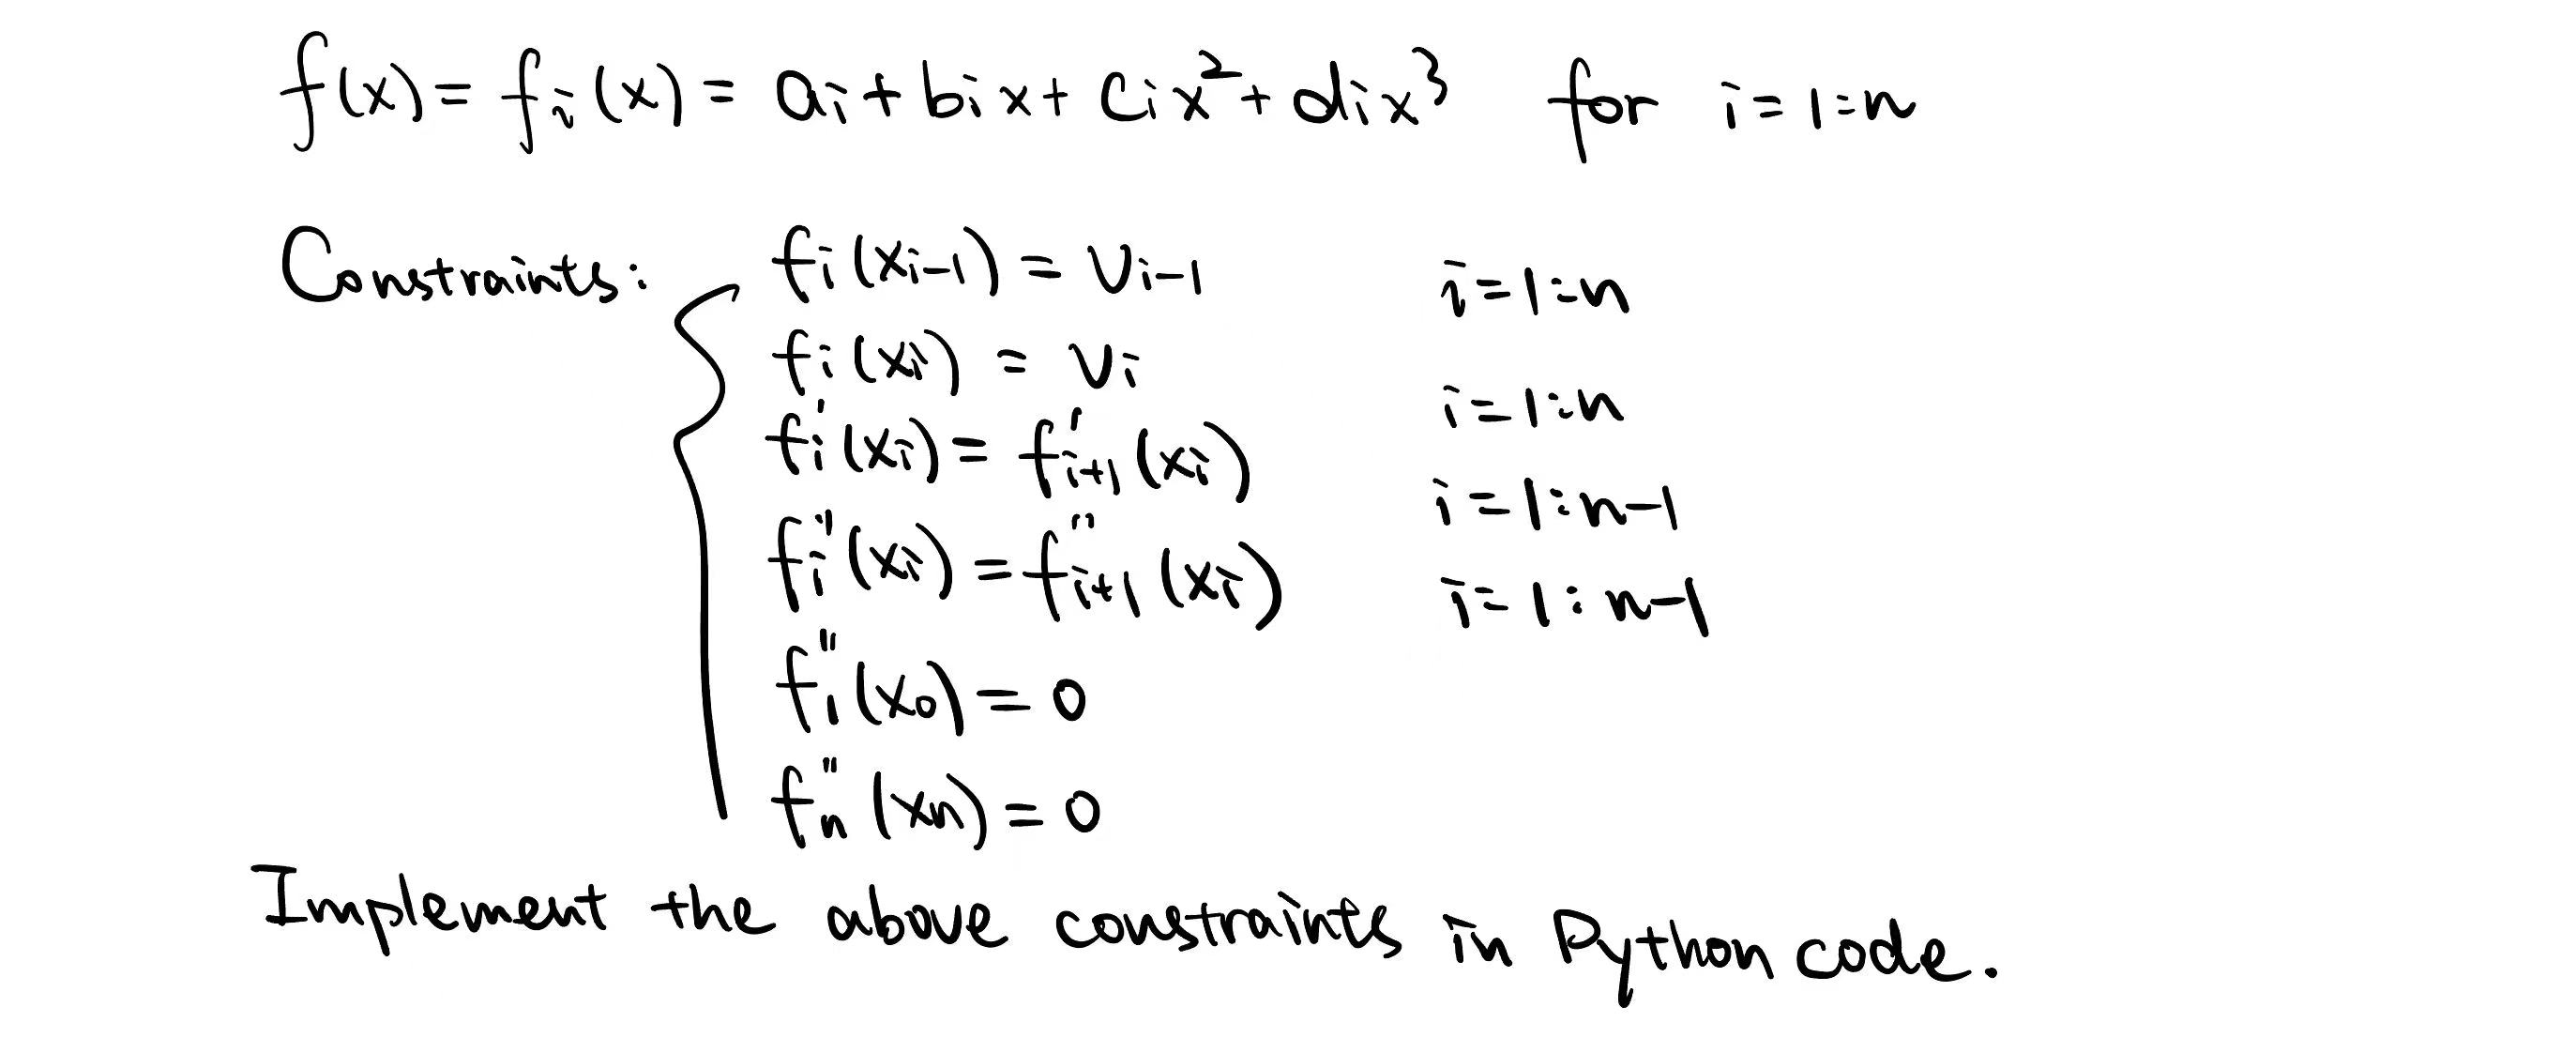 f(x) = fᵢ(x) = aᵢ + bᵢx + cᵢx² + dᵢx³ for i = 1:n
Constraints: fᵢ(xᵢ₋₁) = vᵢ₋₁ i = 1:n
fᵢ(xᵢ) = vᵢ i = 1:n
fᵢ'(xᵢ) = f'ᵢ₊₁(xᵢ) i = 1:n-1
fᵢ''(xᵢ) = f''ᵢ₊₁(xᵢ) i = 1:n-1
f₁''(x₀) = 0
fₙ''(xₙ) = 0
Implement the above constraints in Python code.